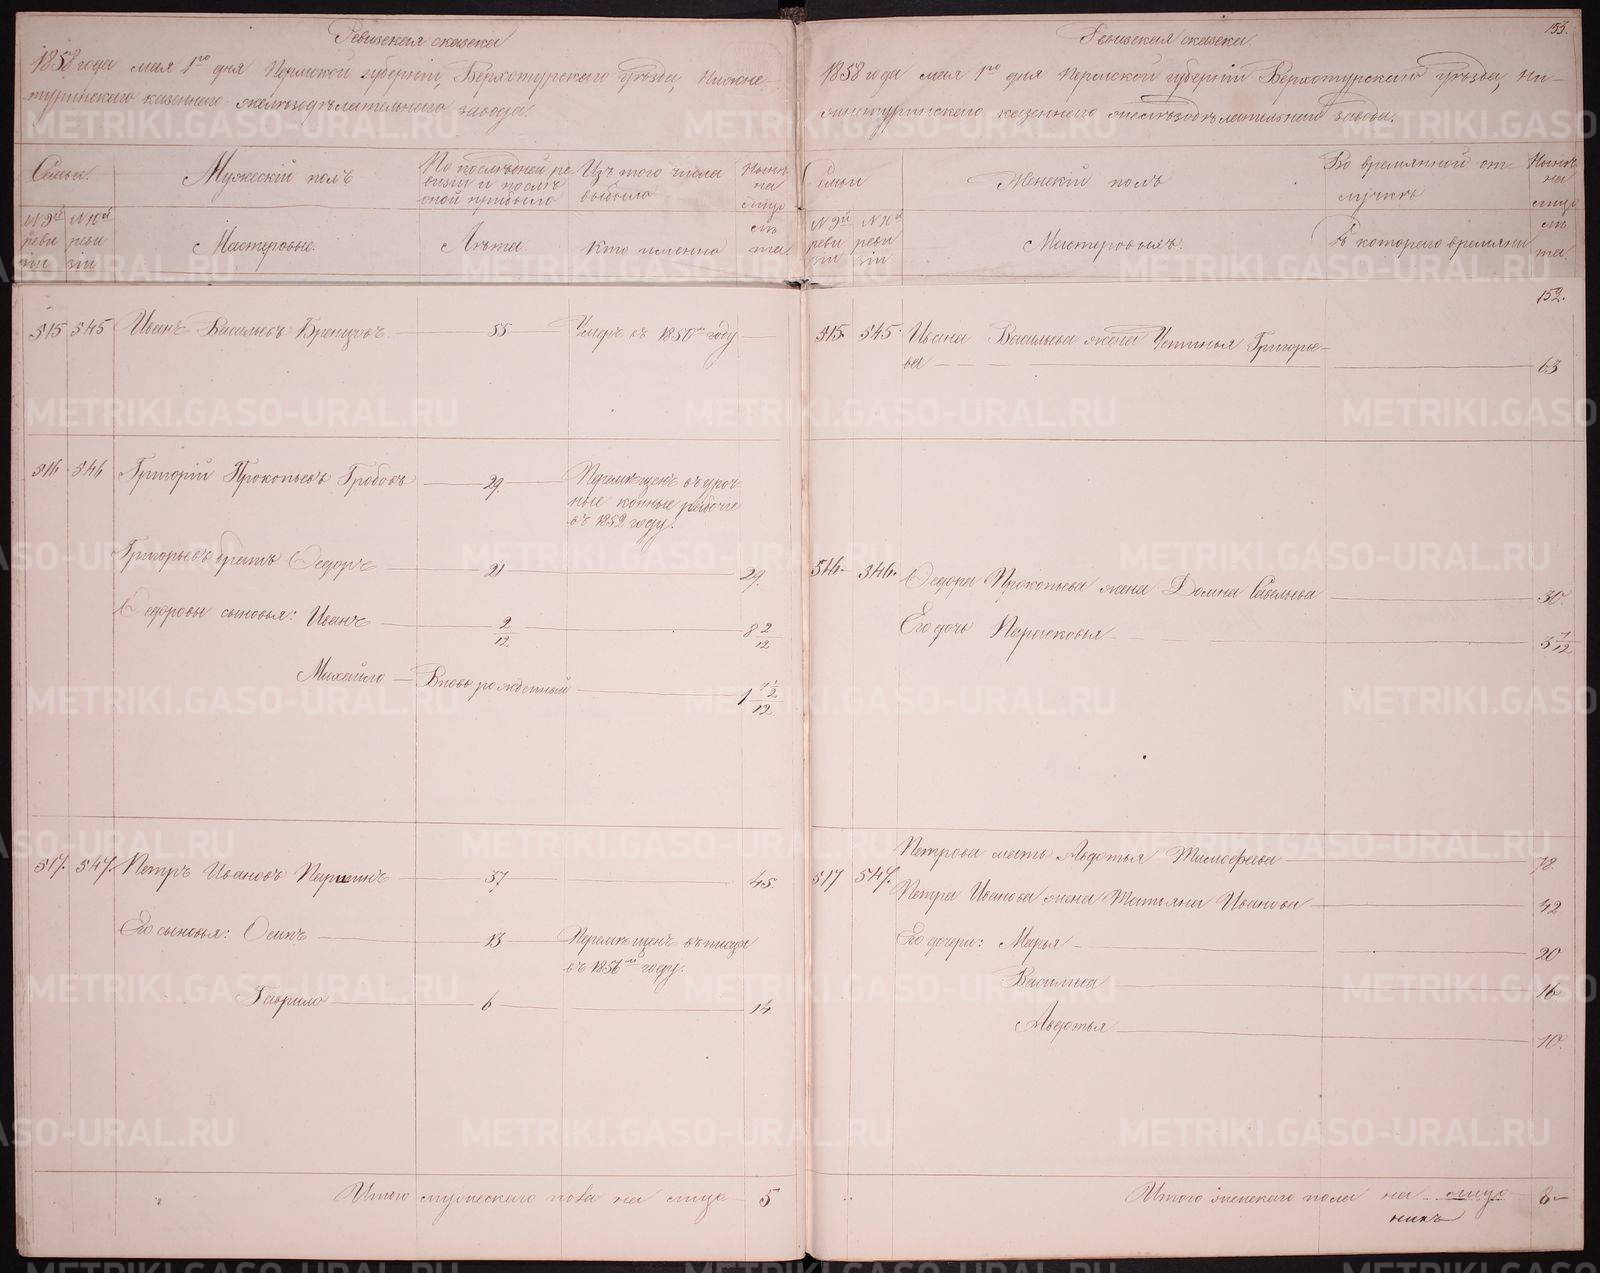 Ревизская сказка
1858 года мая 1го дня Пермской губерніи, Верхотурскаго уѣзда, Нижне-
туринскаго казеннаго желѣзодѣлательнаго завода.
Семьи.
Мужескій полъ
По послѣдней ре
визіи и послѣ
оной прибыло
Изъ того числа
выбыло
Нынѣ
на
лицо
№ 9й
реви
зіи
№ 10й
реви
зіи
Мастеровые.
Лѣта
Кто именно
лѣ
та.
515 545 Иванъ Васильевъ 55 Умеръ въ 1850м году
516 546 Григорій Прокопьевъ Гробовъ 29. Перемѣщенъ въ уроч-
ные конные рабочіе
въ 1852 году.
Григорьевъ братъ Ѳедоръ 21 29.
Ѳедоровы сыновья: Иванъ 2/12 8 2/12
Михайло Вновь рожденный 1
517. 547. Петръ Ивановъ Паршинъ 37 45.
Его сыновья: Осипъ 13 Перемѣщенъ въ писцы
въ 1856м году.
Гаврило 6 14.
Итого мужескаго пола на лицо 5
153.
Ревизская сказка.
1858 года мая 1го дня Пермской губерніи Верхотурскаго уѣзда, Ни-
жнетуринскаго казеннаго желѣзодѣлательнаго завода.
Семьи
Женскій полъ
Во времянной от
лучкѣ
Нынѣ
на
лицо
№ 9й
реви
зіи
№ 10й
реви
зіи
Мастеровыхъ.
Съ котораго времяни
лѣ
та.
152.
515. 545. Ивана Васильева жена Устинья Григорье-
ва 63
546. Ѳедора Прокопьева жена Домна Савельева 30.
Его дочь Парасковья 3 7/12
Петрова мать Авдотья Тимофеева 72.
517 547. Петра Иванова жена Татьяна Иванова 42
Его дочери: Марья 20
Василиса 16
Авдотья 10.
Итого женскаго пола на лицо 8
никъ
METRIKI.GASO-URAL.RU